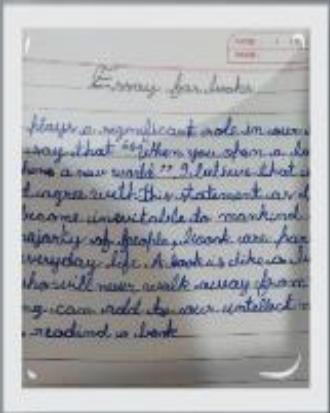 Essay for books
plays a significant role in our
say that "When you open a bo
a new world" I believe that
agree with this statement as
become inevitable to mankind
ajority of people, book are par
everyday life. A book is like a
ho will never walk away from
can add to our intellect
reading a book